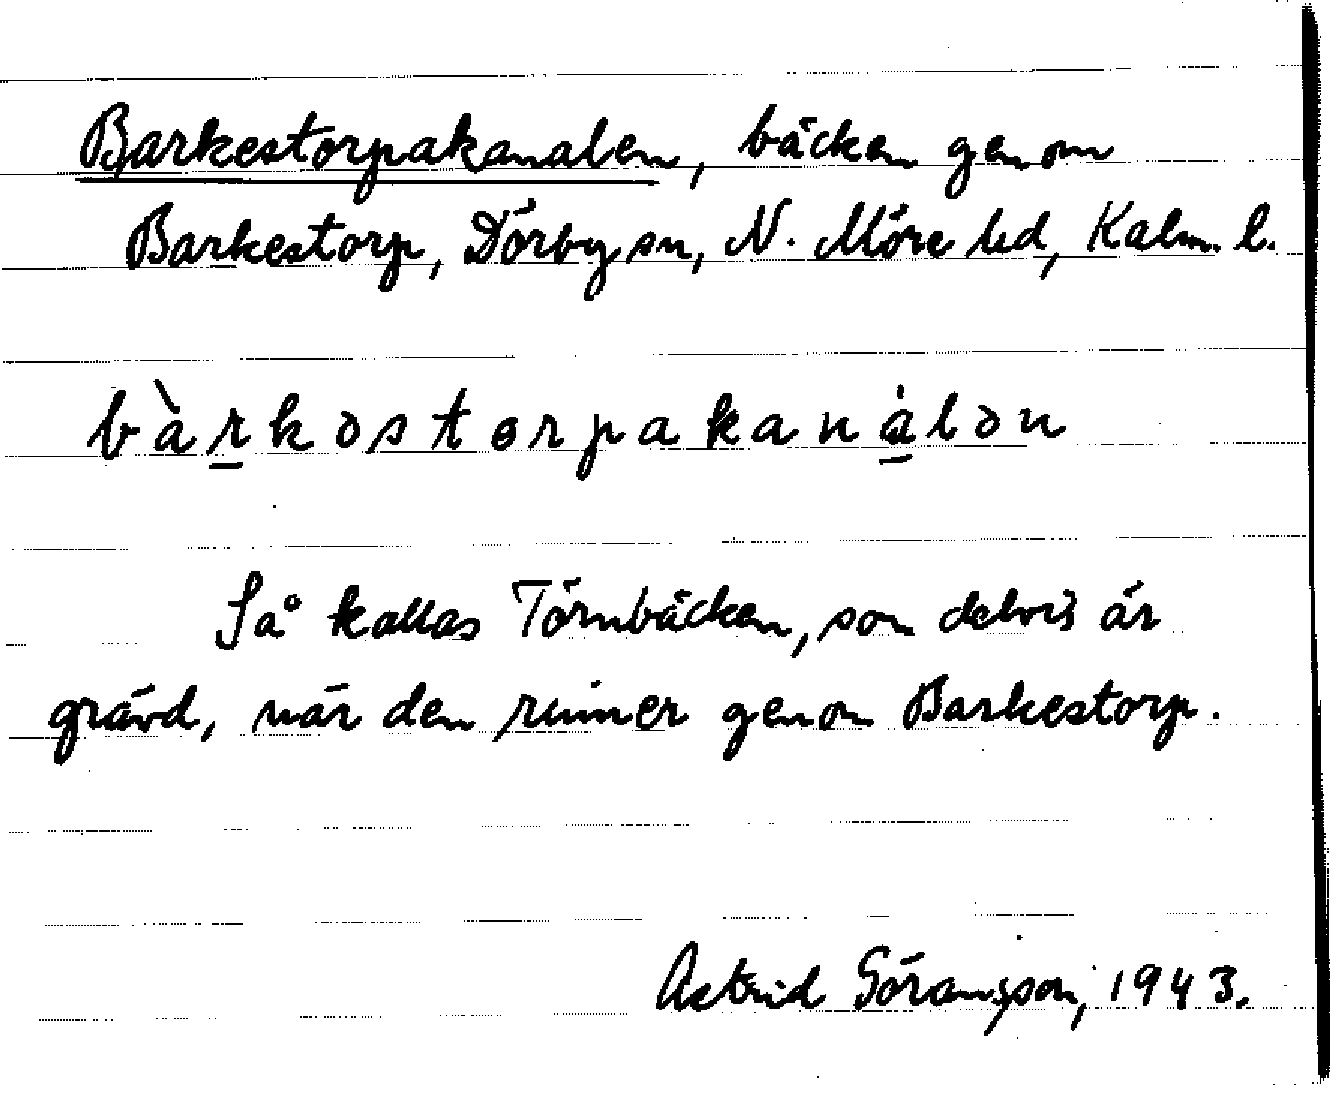 Barkestorpakanalen, bäcken genom
Barkestorp, Dörby sn, N. Möre hd, Kalm. l.
bàrkəstɵrpakanálən
Så kallas Törnbäcken, som delvis är
grävd, när den rinner genom Barkestorp.
Astrid Göransson, 1943.